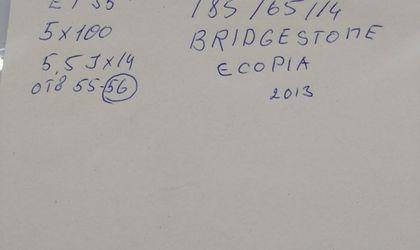 ET 35
5x100
5,5Jx14
ОТВ 55-56
185/65/14
BRIDGESTONE
ECOPIA
2013